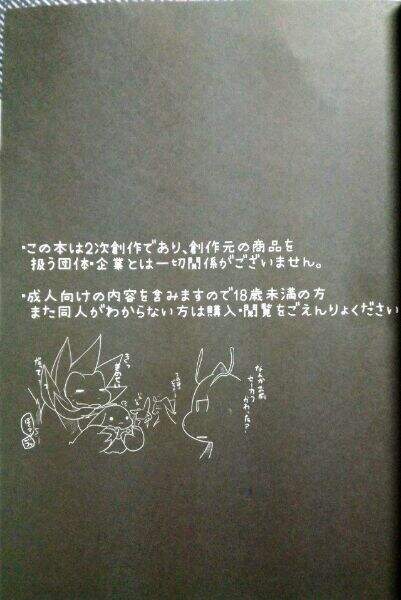 ・この本は2次創作であり、創作元の商品を
扱う団体・企業とは一切関係がございません。
・成人向けの内容を含みますので18歳未満の方
また同人がわからない方は購入・閲覧をごえんりょください
なんかお前
セーカク
かわった?
だって